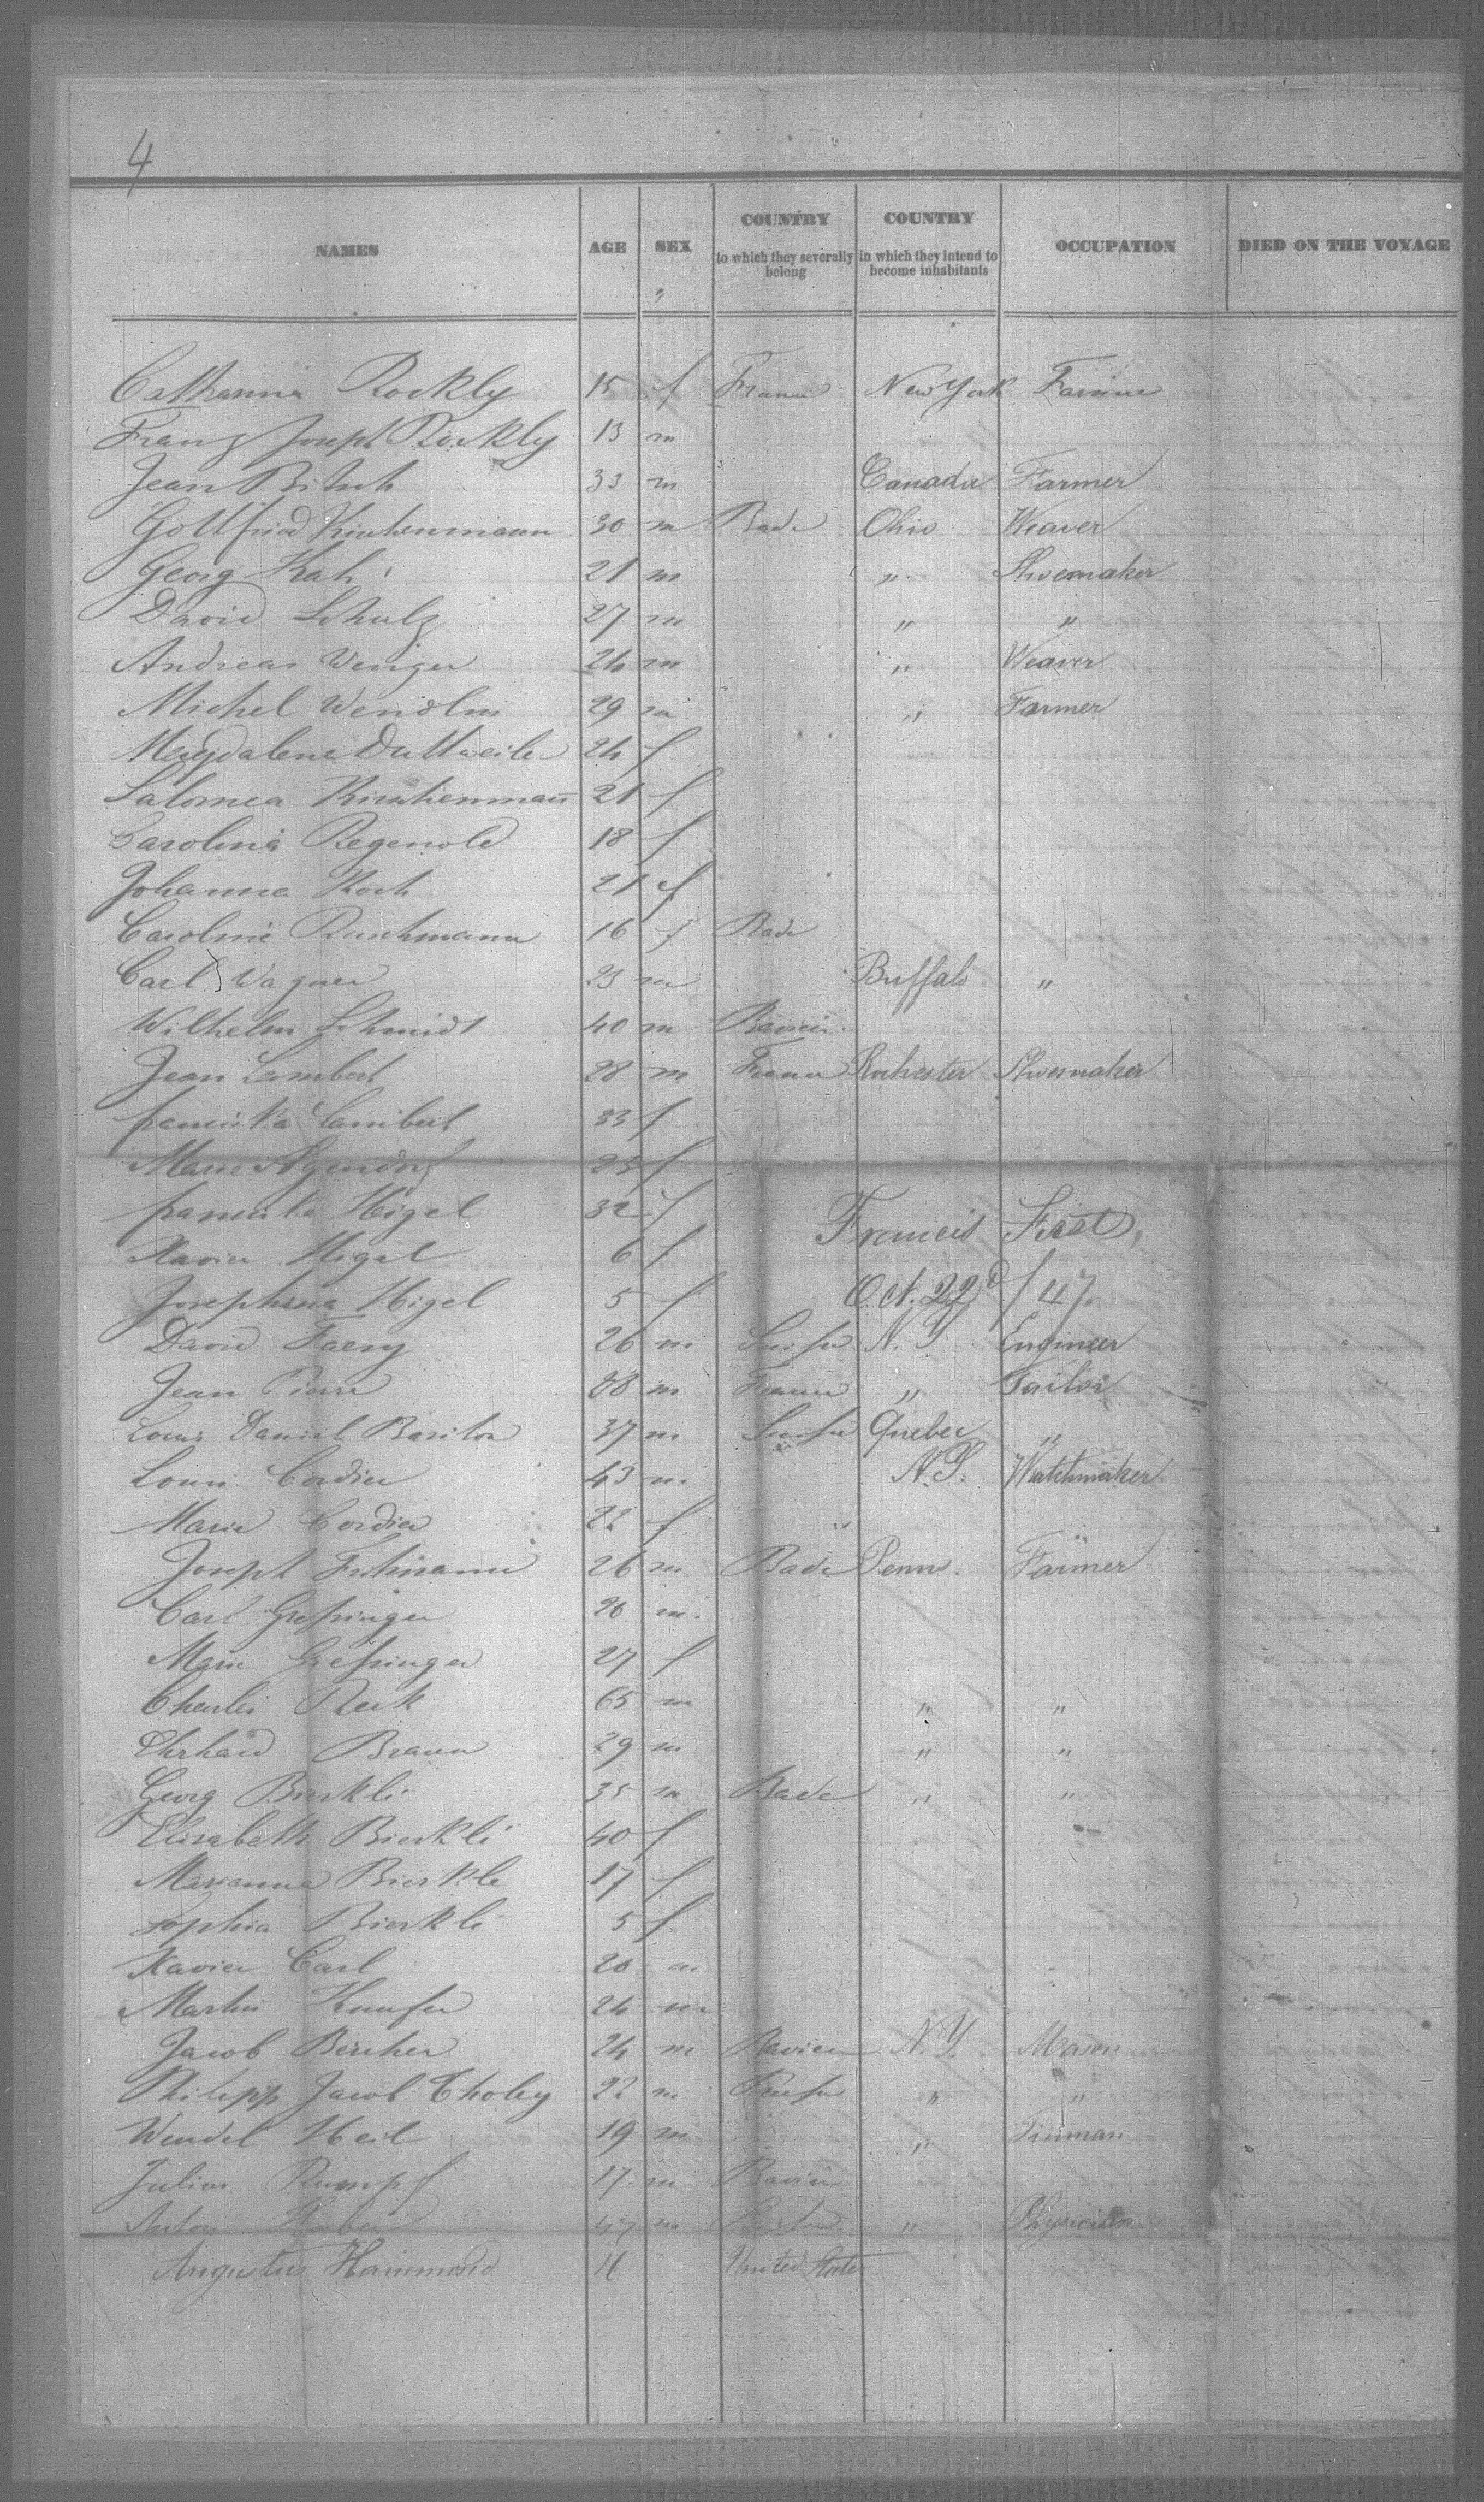 4
NAMES AGE SEX COUNTRY to which they severally belong COUNTRY in which they intend to become inhabitants OCCUPATION DIED ON THE VOYAGE
Catharina Rockly 15 f France New York Farmer
Franz Joseph Rockly 13 m
Jean Bitsch 33 m Canada Farmer
Gottfried Kirschenmann 30 m Bade Ohio Weaver
Georg Kah 21 m " Shoemaker
David Schulz 27 m " "
Andreas Wenger 24 m " Weaver
Michel Wendlin 29 m " Farmer
Magdalene Duttweiler 24 f
Salomea Kirschenmann 21 f
Carolina Regenold 18 f
Johanna Koch 21 f
Caroline Ruschmann 16 f Bade
Carl Wagner 23 m Buffalo "
Wilhelm Schmidt 40 m Bavier
Jean Lambert 28 m France Rochester Shoemaker
Lambert 33 f
Marie 23 f
Higel 32 f
Xavier Higel 6 f Francis First,
Josephina Higel 5 f Oct. 22d/47.
David Faesy 26 m Suisse N.Y. Engineer
Jean Pierre 38 m France " Tailor
Louis Daniel Bariton 37 m Suisse Quebec "
Louis Cordier 43 m N.Y. Watchmaker
Marie Cordier 22 f " "
Joseph 26 m Bade Penn. Farmer
Carl Gressinger 26 m.
Marie Gressinger 27 f
Charles Reck 65 m " "
Ehrhard Braun 29 m " "
Georg Bierkli 35 m Bade " "
Elisabeth Bierkli 40 f
Marianna Bierkli 17 f
Sophia Bierkli 5 f
Xavier Carl 20 m
Martin 24 m
Jacob Bercher 24 m Bavier N.Y. Mason
Philipp Jacob Choley 22 m " "
Wendel Heil 19 m " Tinman
Julius Rumpf 17 m Bavier
Anton Huber 47 m " Physician
Augustus Hammond 14 United States